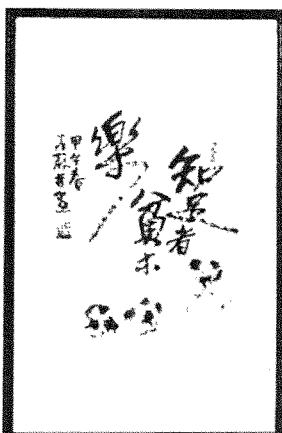 知足者
貧亦
樂
甲午春